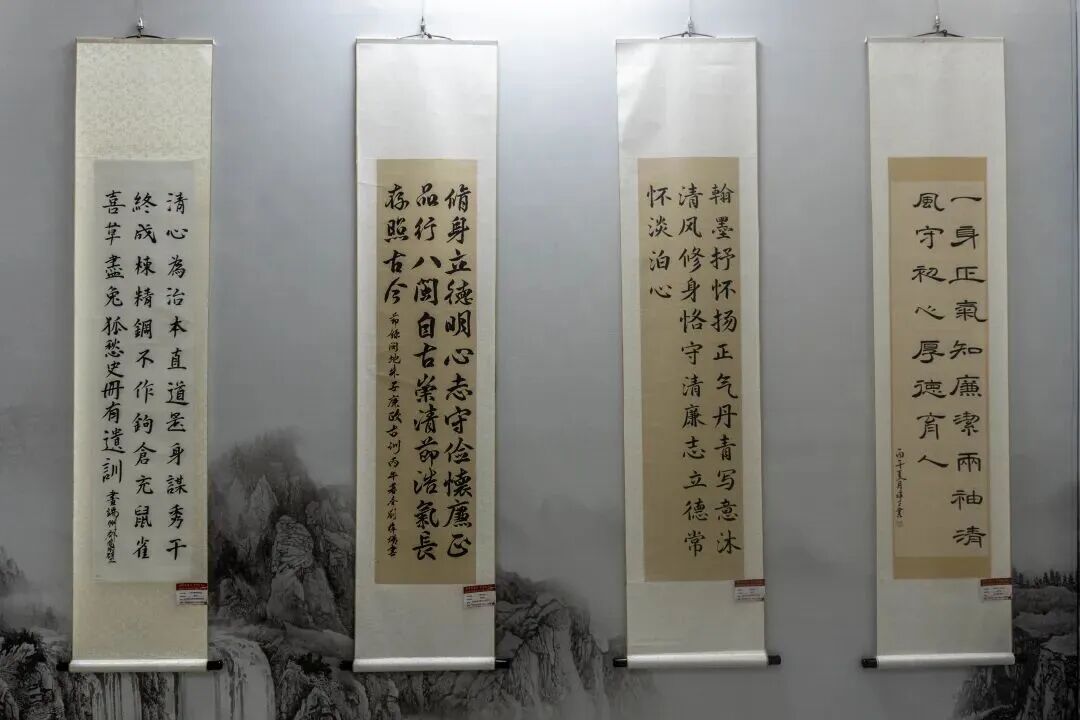 清心為治本直道是身謀秀干
終成棟精鋼不作鉤倉充鼠雀
喜草盡兔狐愁史冊有遺訓 書端州郡齋壁
脩身立德明心志守俭懷廉正
品行八閩自古崇清節浩氣長
存照古今 節録閩地朱子廉政古训丙午春
翰墨抒怀扬正气丹青写意沐
清风修身恪守清廉志立德常
怀淡泊心
一身正氣知廉潔兩袖清
風守初心厚德育人
丙午夏月